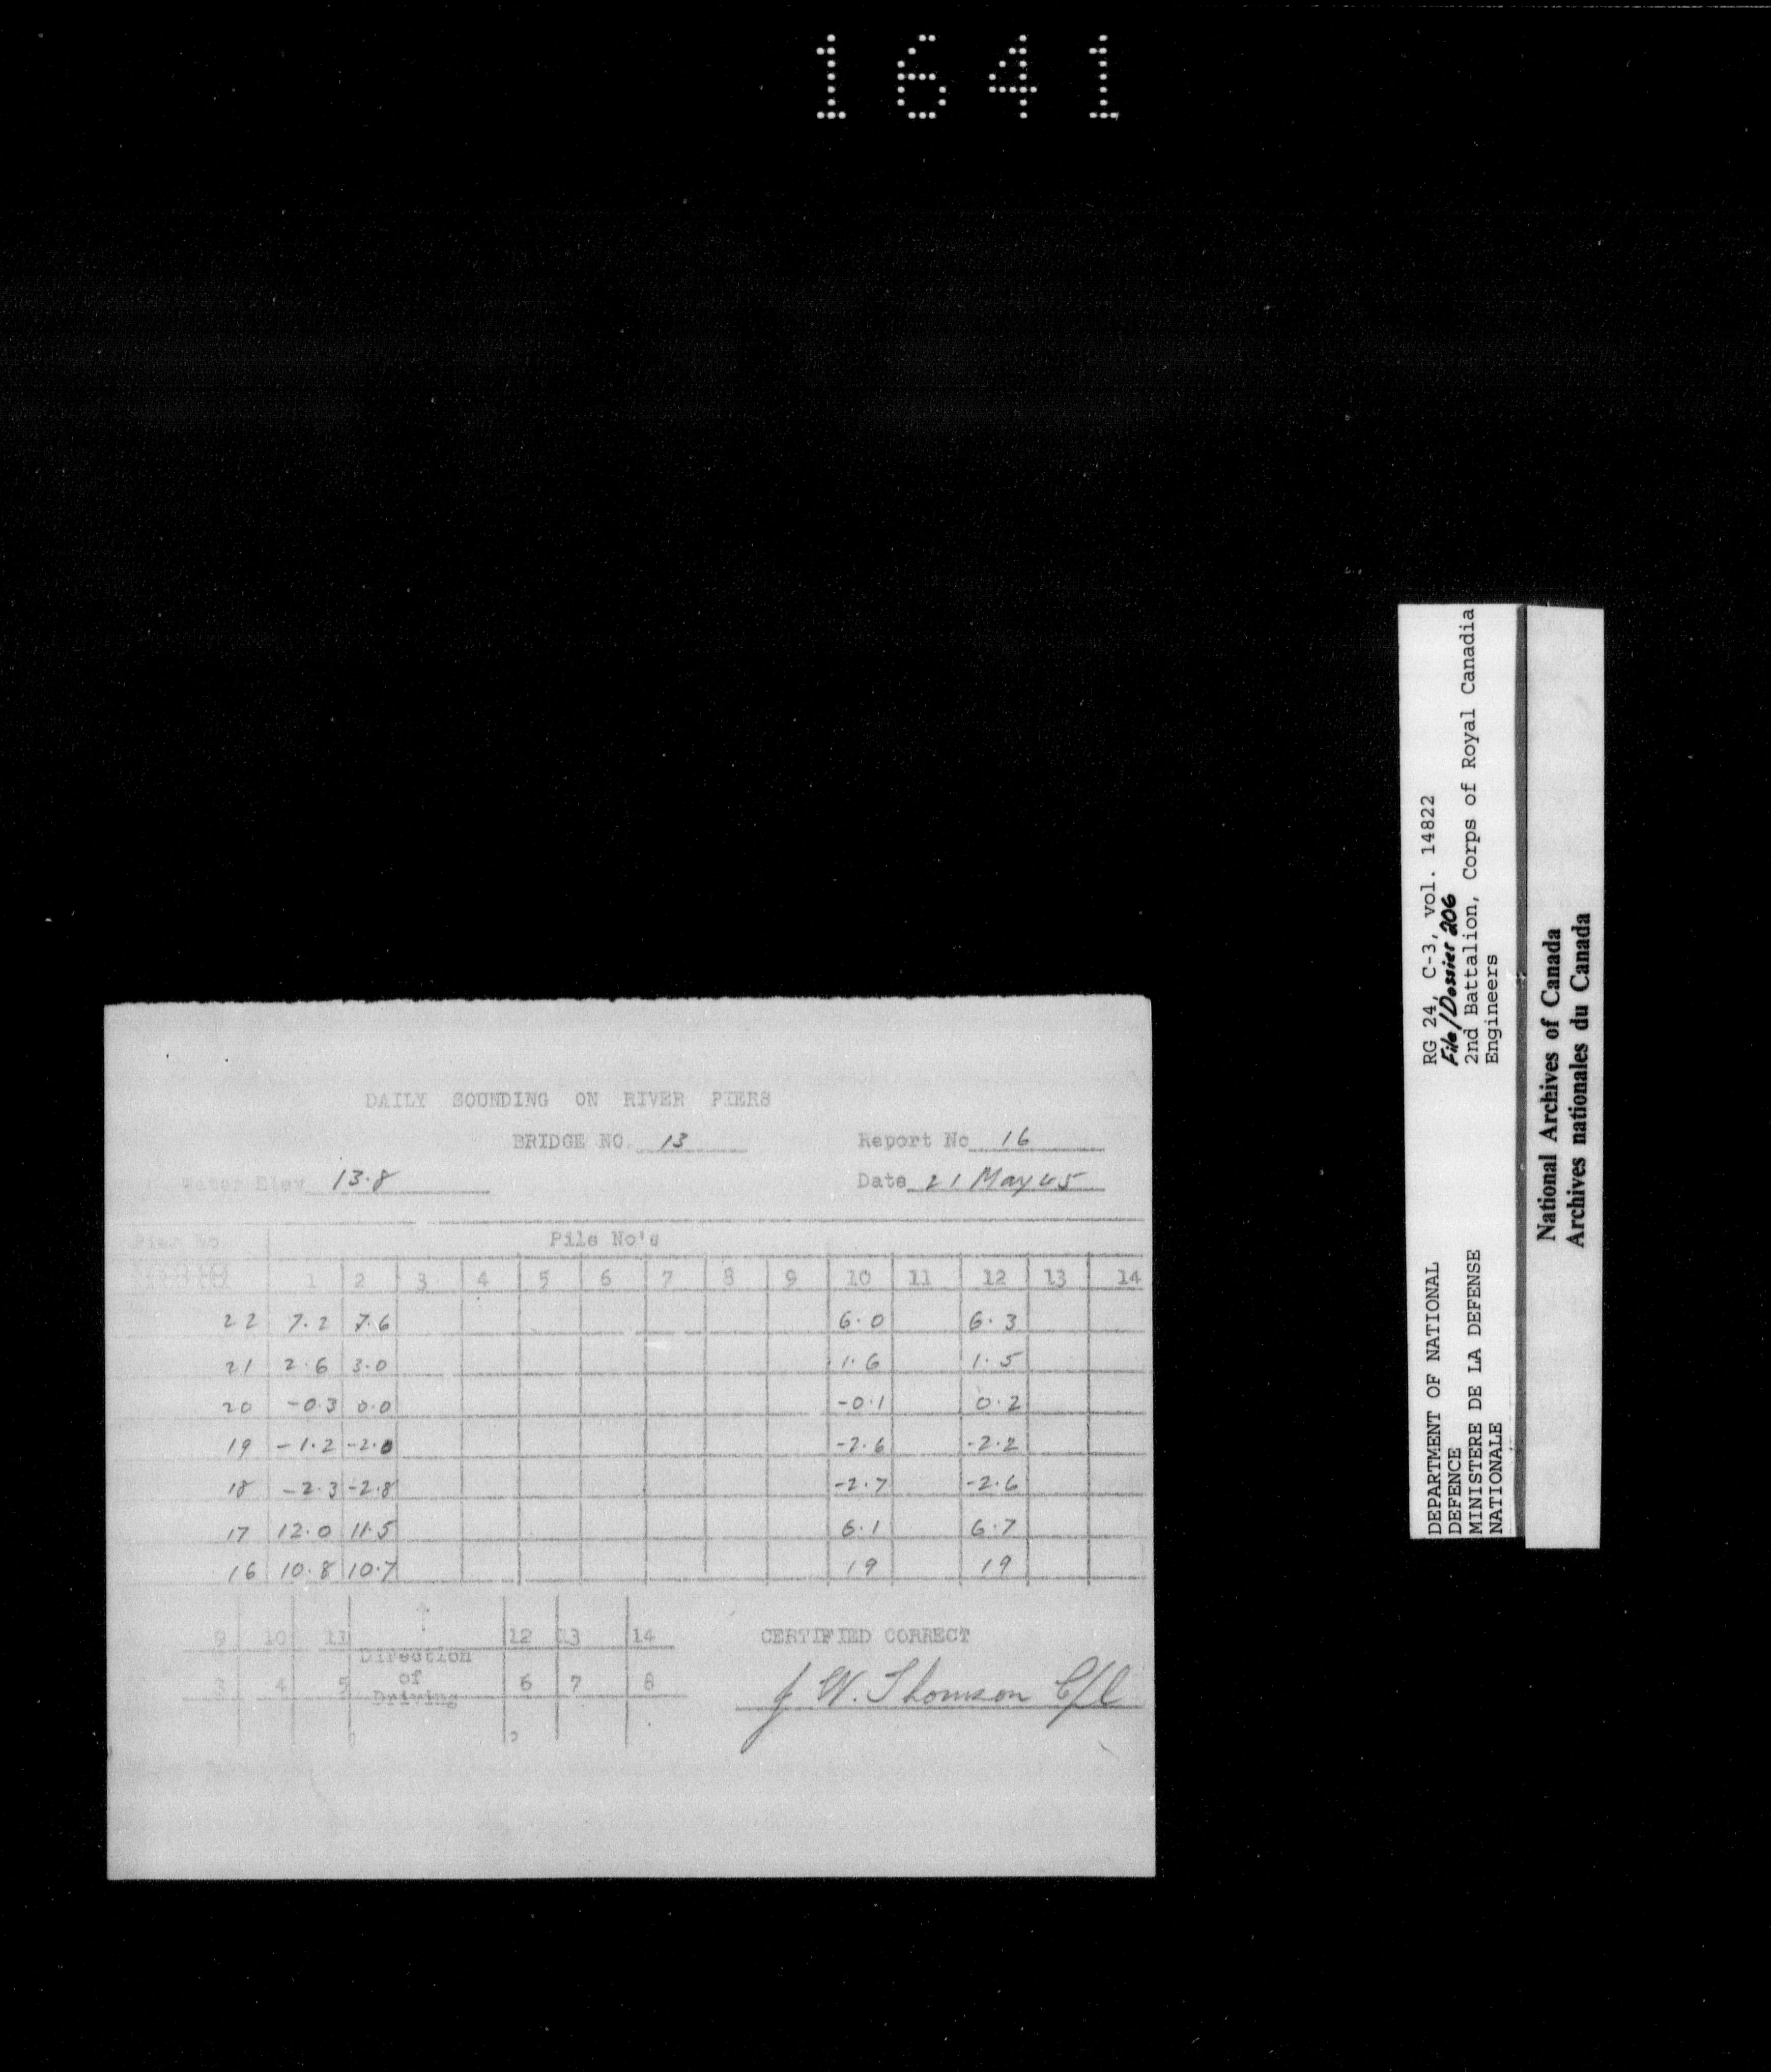 1641
DAILY SOUNDING ON RIVER PIERS
BRIDGE NO. 13 Report No 16
Water Elev 13.8 Date 21 May 45
Pier No Pile No's
1 2 3 4 5 6 7 8 9 10 11 12 13 14
22 7.2 7.6 6.0 6.3
21 2.6 3.0 1.6 1.5
20 -0.3 0.0 -0.1 0.2
19 -1.2 -2.0 -2.6 -2.2
18 -2.3 -2.8 -2.7 -2.6
17 12.0 11.5 6.1 6.7
16 10.8 10.7 19 19
9 10 11 12 13 14
Direction
of
Driving
3 4 5 6 7 8
CERTIFIED CORRECT
J W. Thomson Cpl
RG 24, C-3, vol. 14822
File/Dossier 206
2nd Battalion, Corps of Royal Canadia
Engineers
DEPARTMENT OF NATIONAL
DEFENCE
MINISTERE DE LA DEFENSE
NATIONALE
National Archives of Canada
Archives nationales du Canada